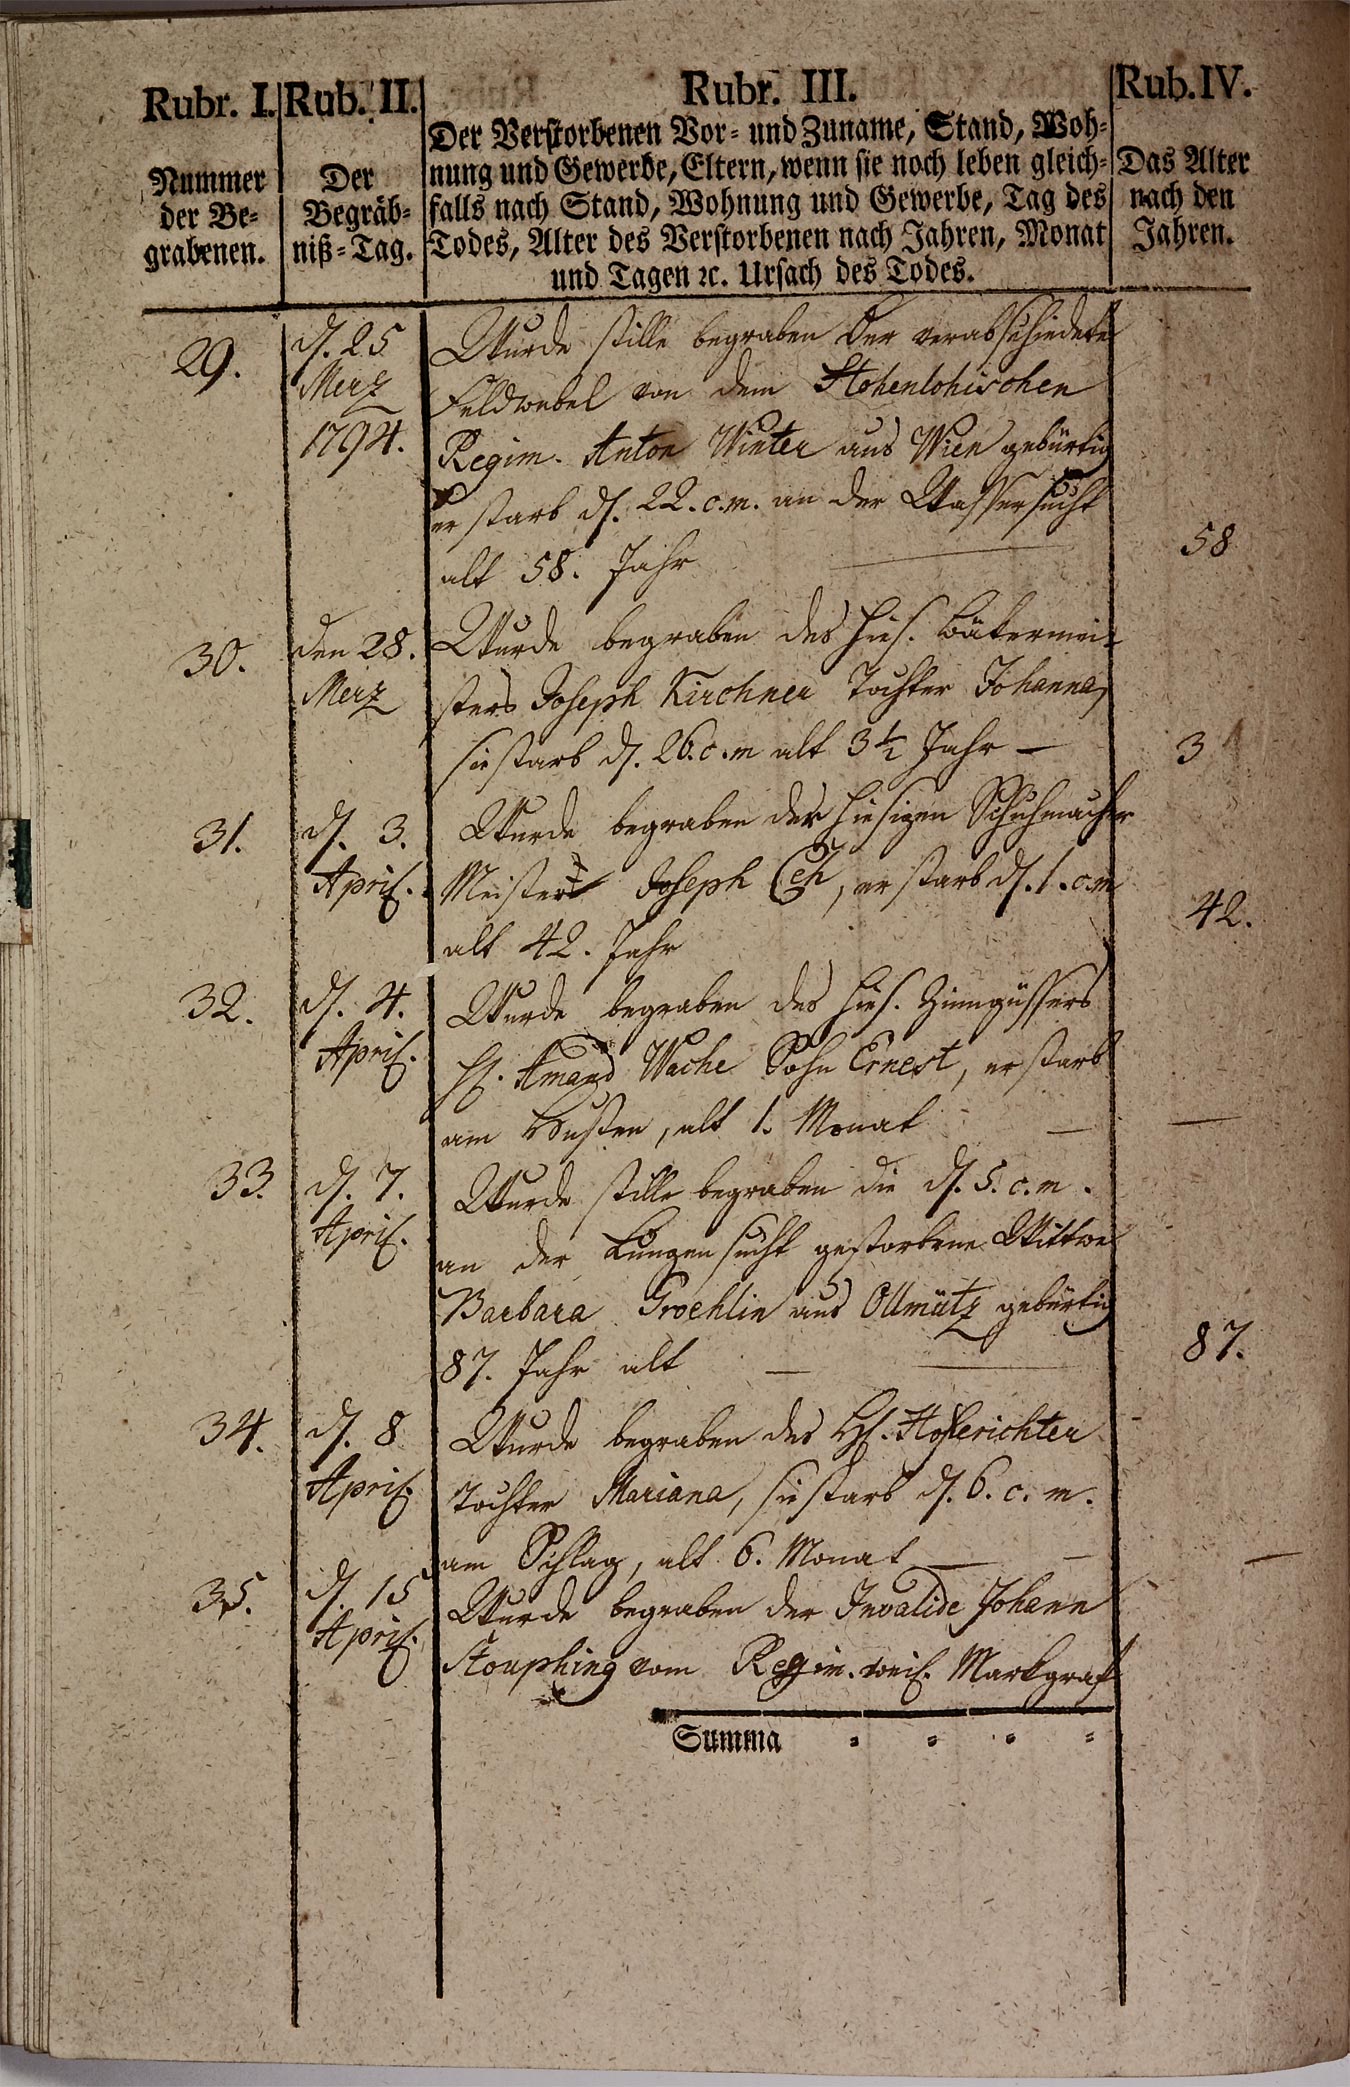 Rubr. I. Rub. II. Rubr. III. Rub. IV.
Nummer der Be=
grabenen.
Der
Begräb=
niß=Tag.
Der Verstorbenen Vor= und Zuname, Stand, Woh=
nung und Gewerbe, Eltern, wenn sie noch leben gleich=
falls nach Stand, Wohnung und Gewerbe, Tag des
Todes, Alter des Verstorbenen nach Jahren, Monat
und Tagen ꝛc. Ursach des Todes.
Das Alter
nach den
Jahren.
29.
d. 25
Merz
1794.
Wurde stille begraben der verabschiedete
Feldwebel von dem Hohenlohischen
Regim. Anton Winter aus Wien gebürtig
er starb d. 22. c. m. an der Wassersucht
alt 58. Jahr
58
30.
den 28.
Merz
Wurde begraben des hies. Bäkermei=
sters Joseph Kirchner Tochter Johanna,
sie starb d. 26. c. m alt 3½ Jahr —
3
31.
d. 3.
April.
Wurde begraben der hiesigen Schuhmacher
Meister Joseph Ceh, er starb d. 1. c. m
alt 42. Jahr
42.
32.
d. 4.
April.
Wurde begraben des hies. Zinngüssers
H. Amand Wache Sohn Ernest, er starb
am Husten, alt 1. Monat —
—
33.
d. 7.
April.
Wurde stille begraben die d. 5. c. m.
an der Lungensucht gestorbene Wittwe
Barbara Groehlin aus Ollmütz gebürtig
87. Jahr alt —
87.
34.
d. 8
April.
Wurde begraben des H. Hofferichter
Tochter Mariana, sie starb d. 6. c. m.
am Schlag, alt 6. Monat — —
—
35.
d. 15
April.
Wurde begraben der Invalide Johann
Stouphing vom Regim. weil. Markgraf
Summa = = = =